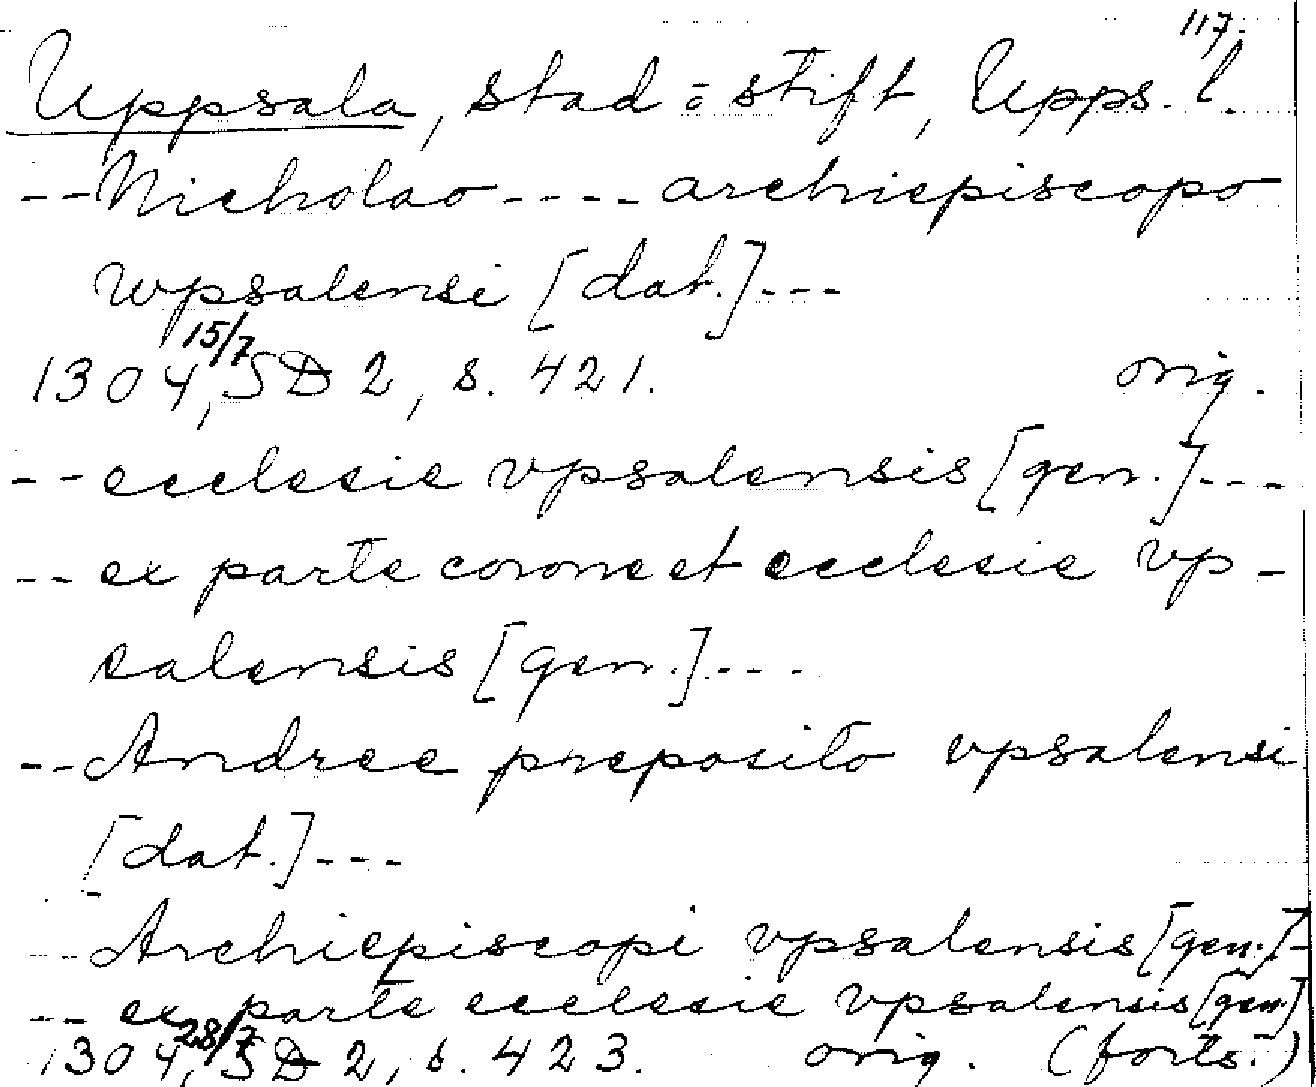 117.
Uppsala, stad o. stift, Upps. l.
-- Nicholao ---- archiepiscopo
wpsalensi [dat.] ---
1304 15/7, SD 2, s. 421. orig.
-- ecclesie vpsalensis [gen.] ---
-- ex parte corone et ecclesie vp-
salensis [gen.] ---
-- Andree preposito vpsalensi
[dat.] ---
-- Archiepiscopi vpsalensis [gen.] -
-- ex parte ecclesie vpsalensis [gen.]
1304 28/7, SD 2, s. 423. orig. (forts.)